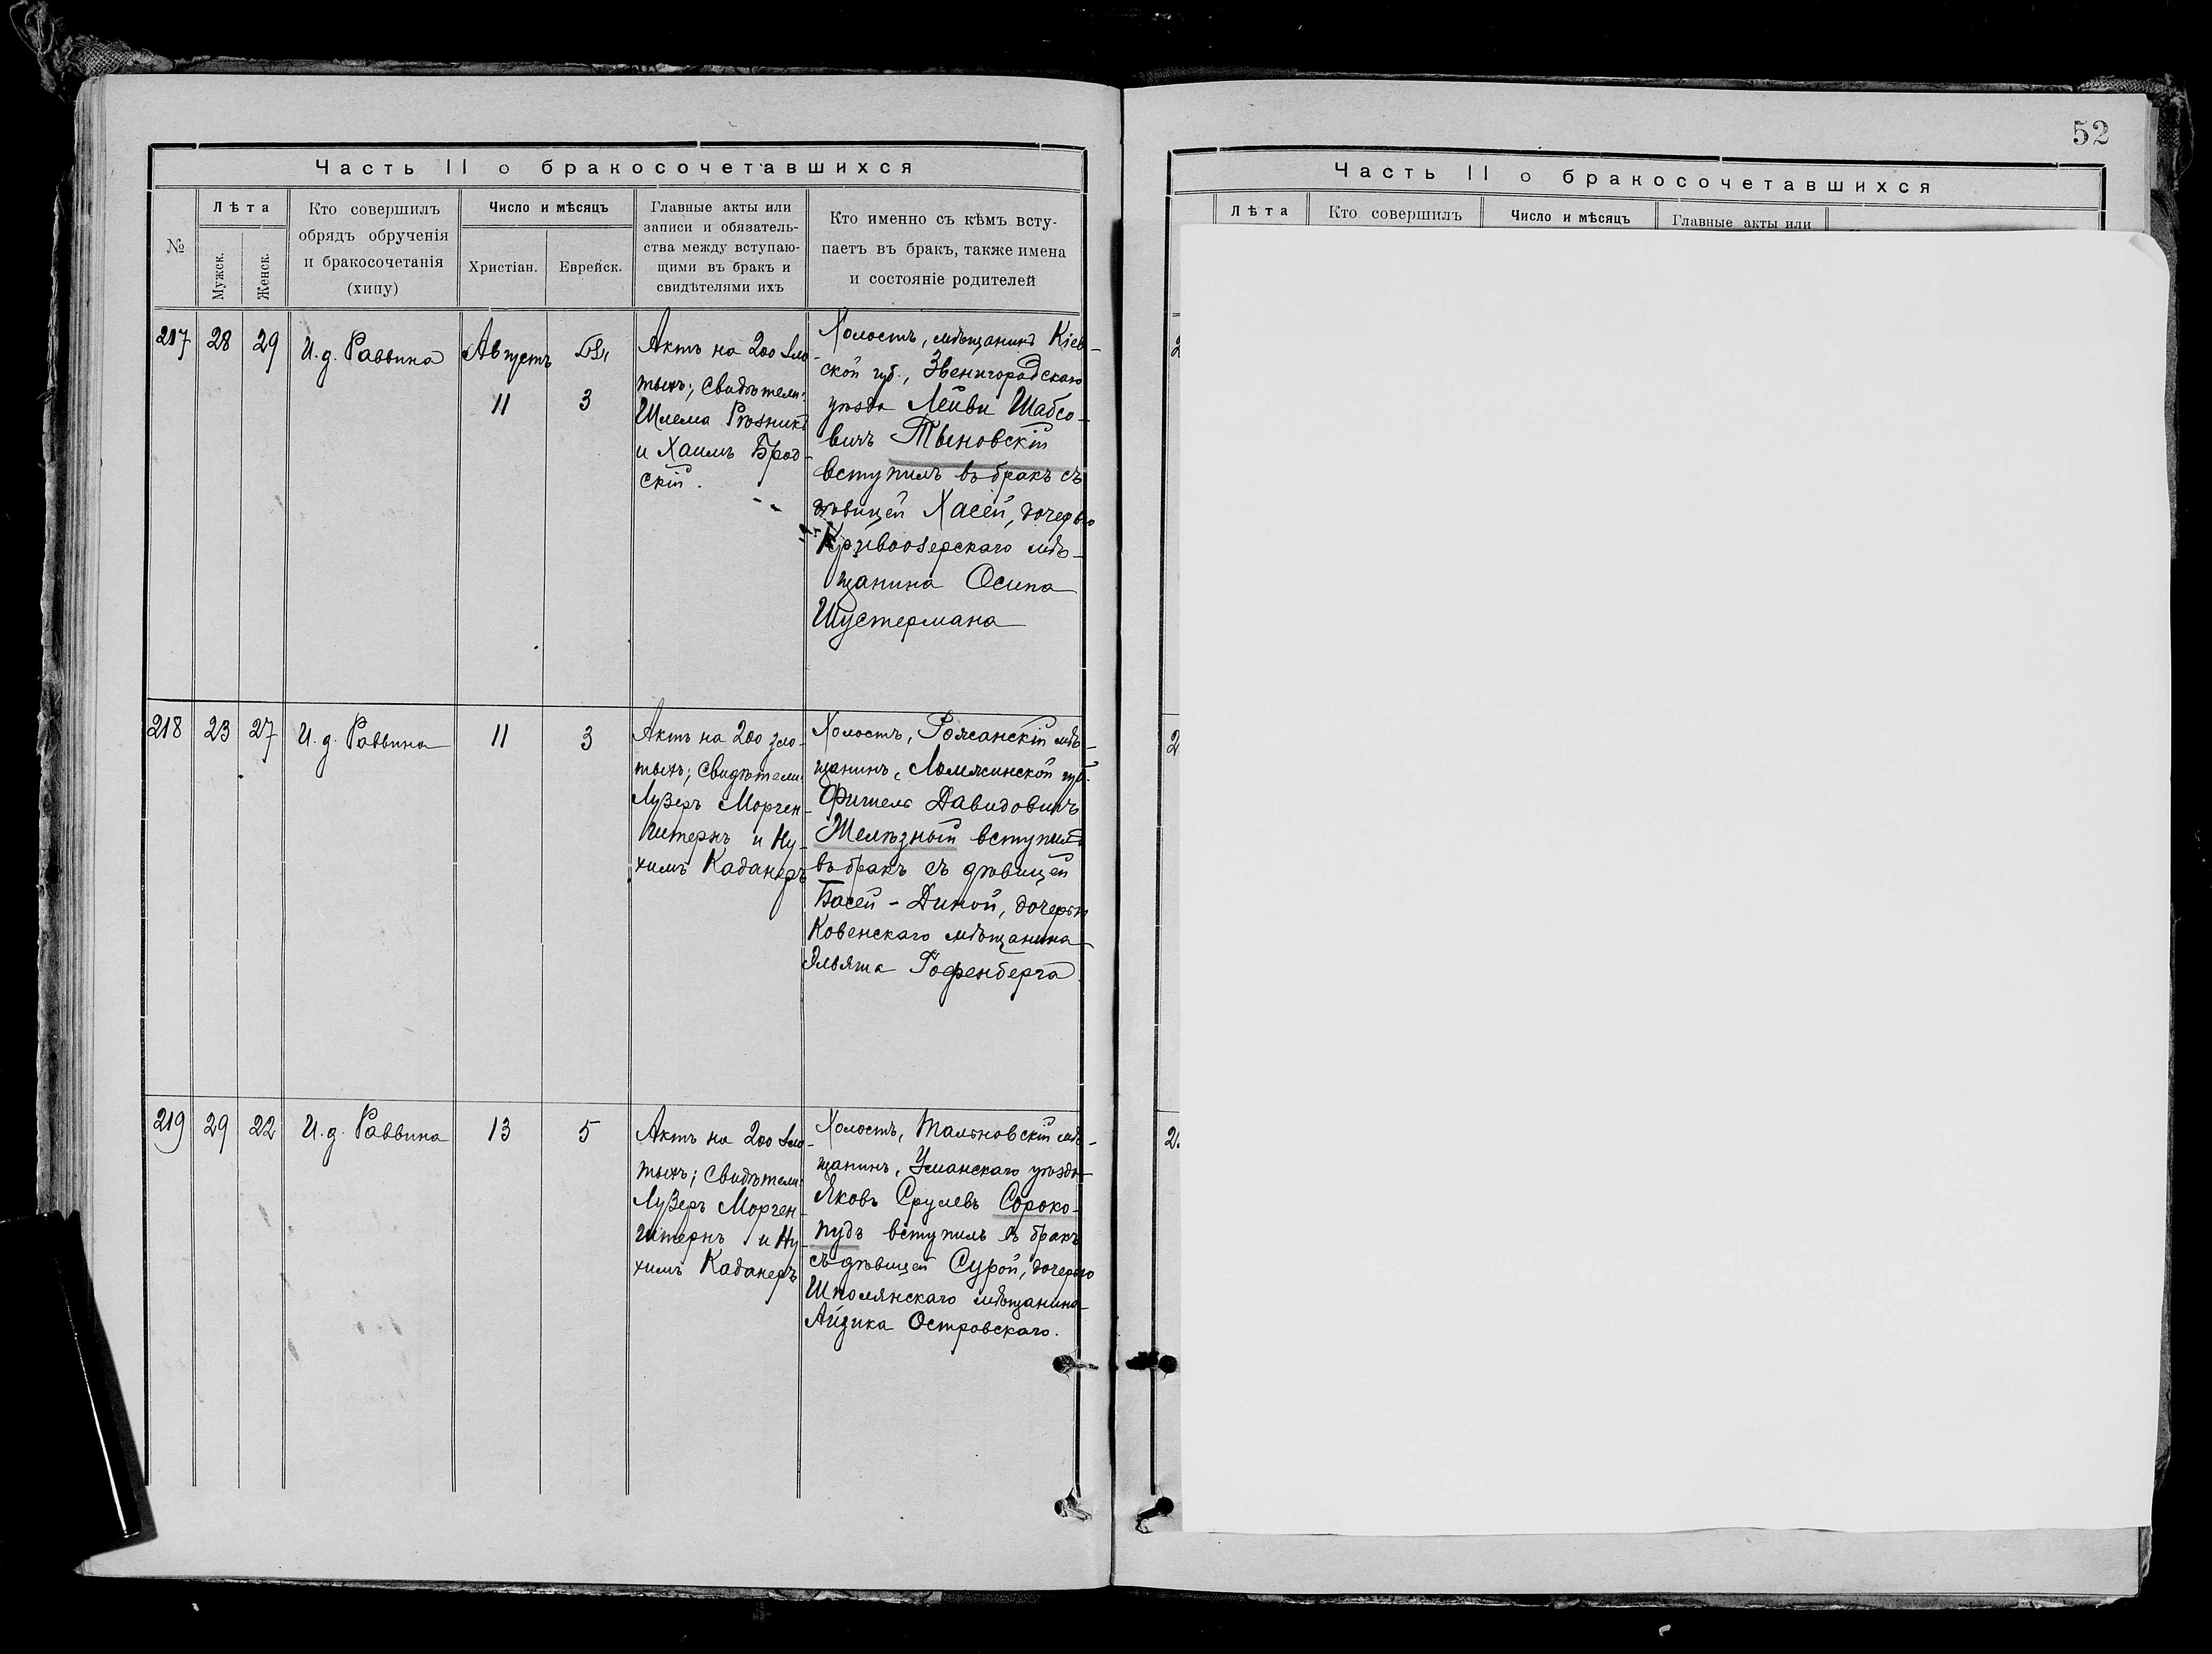 52
Часть II о бракосочетавшихся
№
Лѣта
Мужск.
Женск.
Кто совершилъ
обрядъ обрученія
и бракосочетанія
(хипу)
Число и мѣсяцъ
Христіан.
Еврейск.
Главные акты или
записи и обязатель-
ства между вступаю-
щими въ бракъ и
свидѣтелями ихъ
Кто именно съ кѣмъ всту-
паетъ въ бракъ, также имена
и состояніе родителей
217
28
29
И. д. Раввина
Августъ
11
3
Актъ на 200 зло-
тыхъ; свидѣтели:
Шлема Рѣзникъ
и Хаимъ Брод-
скій.
Холостъ, мѣщанинъ Кіев-
ской губ., Звенигородскаго
уѣзда Лейви Шабсо-
вичъ Тыновскій
вступилъ въ бракъ съ
дѣвицей Хасей, дочерью
Кривоозерскаго мѣ-
щанина Осипа
Шустермана
218
23
27
И. д. Раввина
11
3
Актъ на 200 зло-
тыхъ; свидѣтели:
Лузеръ Морген-
штернъ и Ну-
химъ Каданеръ
Холостъ, Рожанскій мѣ-
щанинъ, Ломжинской губ.
Фишель Давидовичъ
Желѣзный вступилъ
въ бракъ съ дѣвицей
Басей - Диной, дочерью
Ковенскаго мѣщанина
Эльяша Гофенберга
219
29
22
И. д. Раввина
13
5
Актъ на 200 зло-
тыхъ; свидѣтели:
Лузеръ Морген-
штернъ и Ну-
химъ Каданеръ
Холостъ, Тальновскій мѣ-
щанинъ, Уманскаго уѣзда
Яковъ Срулевъ Сороко-
пудъ вступилъ въ бракъ
съ дѣвицей Сурой, дочерью
Шполянскаго мѣщанина
Айзика Островскаго.
Часть II о бракосочетавшихся
Лѣта
Кто совершилъ
Число и мѣсяцъ
Главные акты или